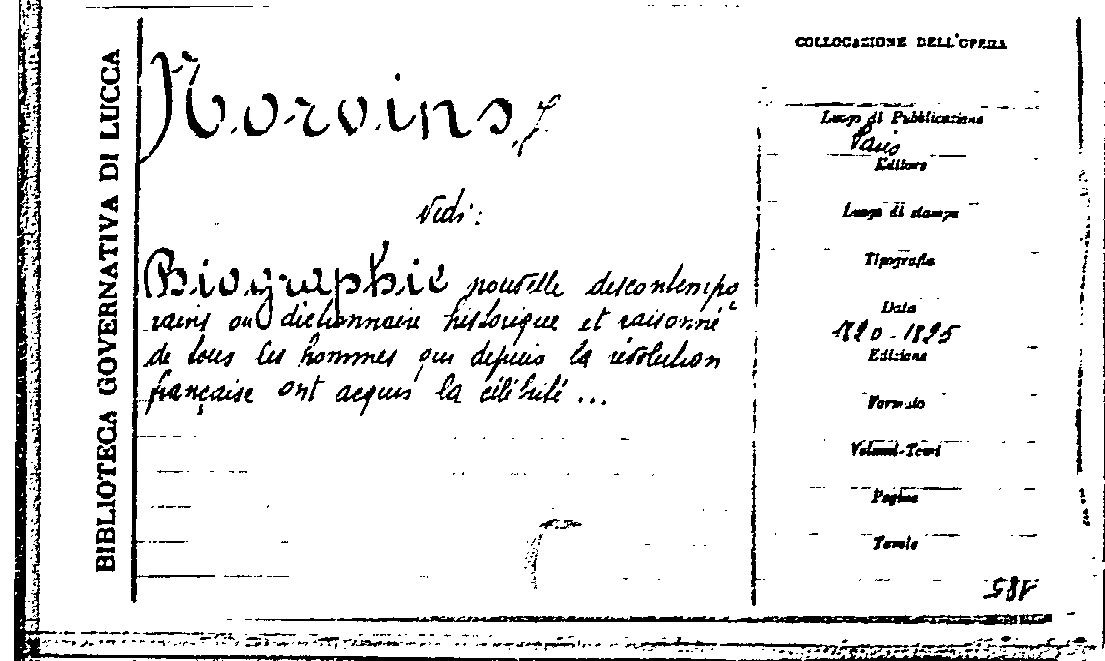 BIBLIOTECA GOVERNATIVA DI LUCCA
Norvins J.
Vedi:
Biographie nouvelle des contempo
rains ou dictionnaire historique et raisonné
de tous les hommes qui depuis la révolution
française ont acquis la célébrité ...
COLLOCAZIONE DELL'OPERA
Luogo di Pubblicazione
Paris
Editore
Luogo di stampa
Tipografia
Data
1820-1825
Edizione
Formato
Volumi-Tomi
Pagine
Tavole